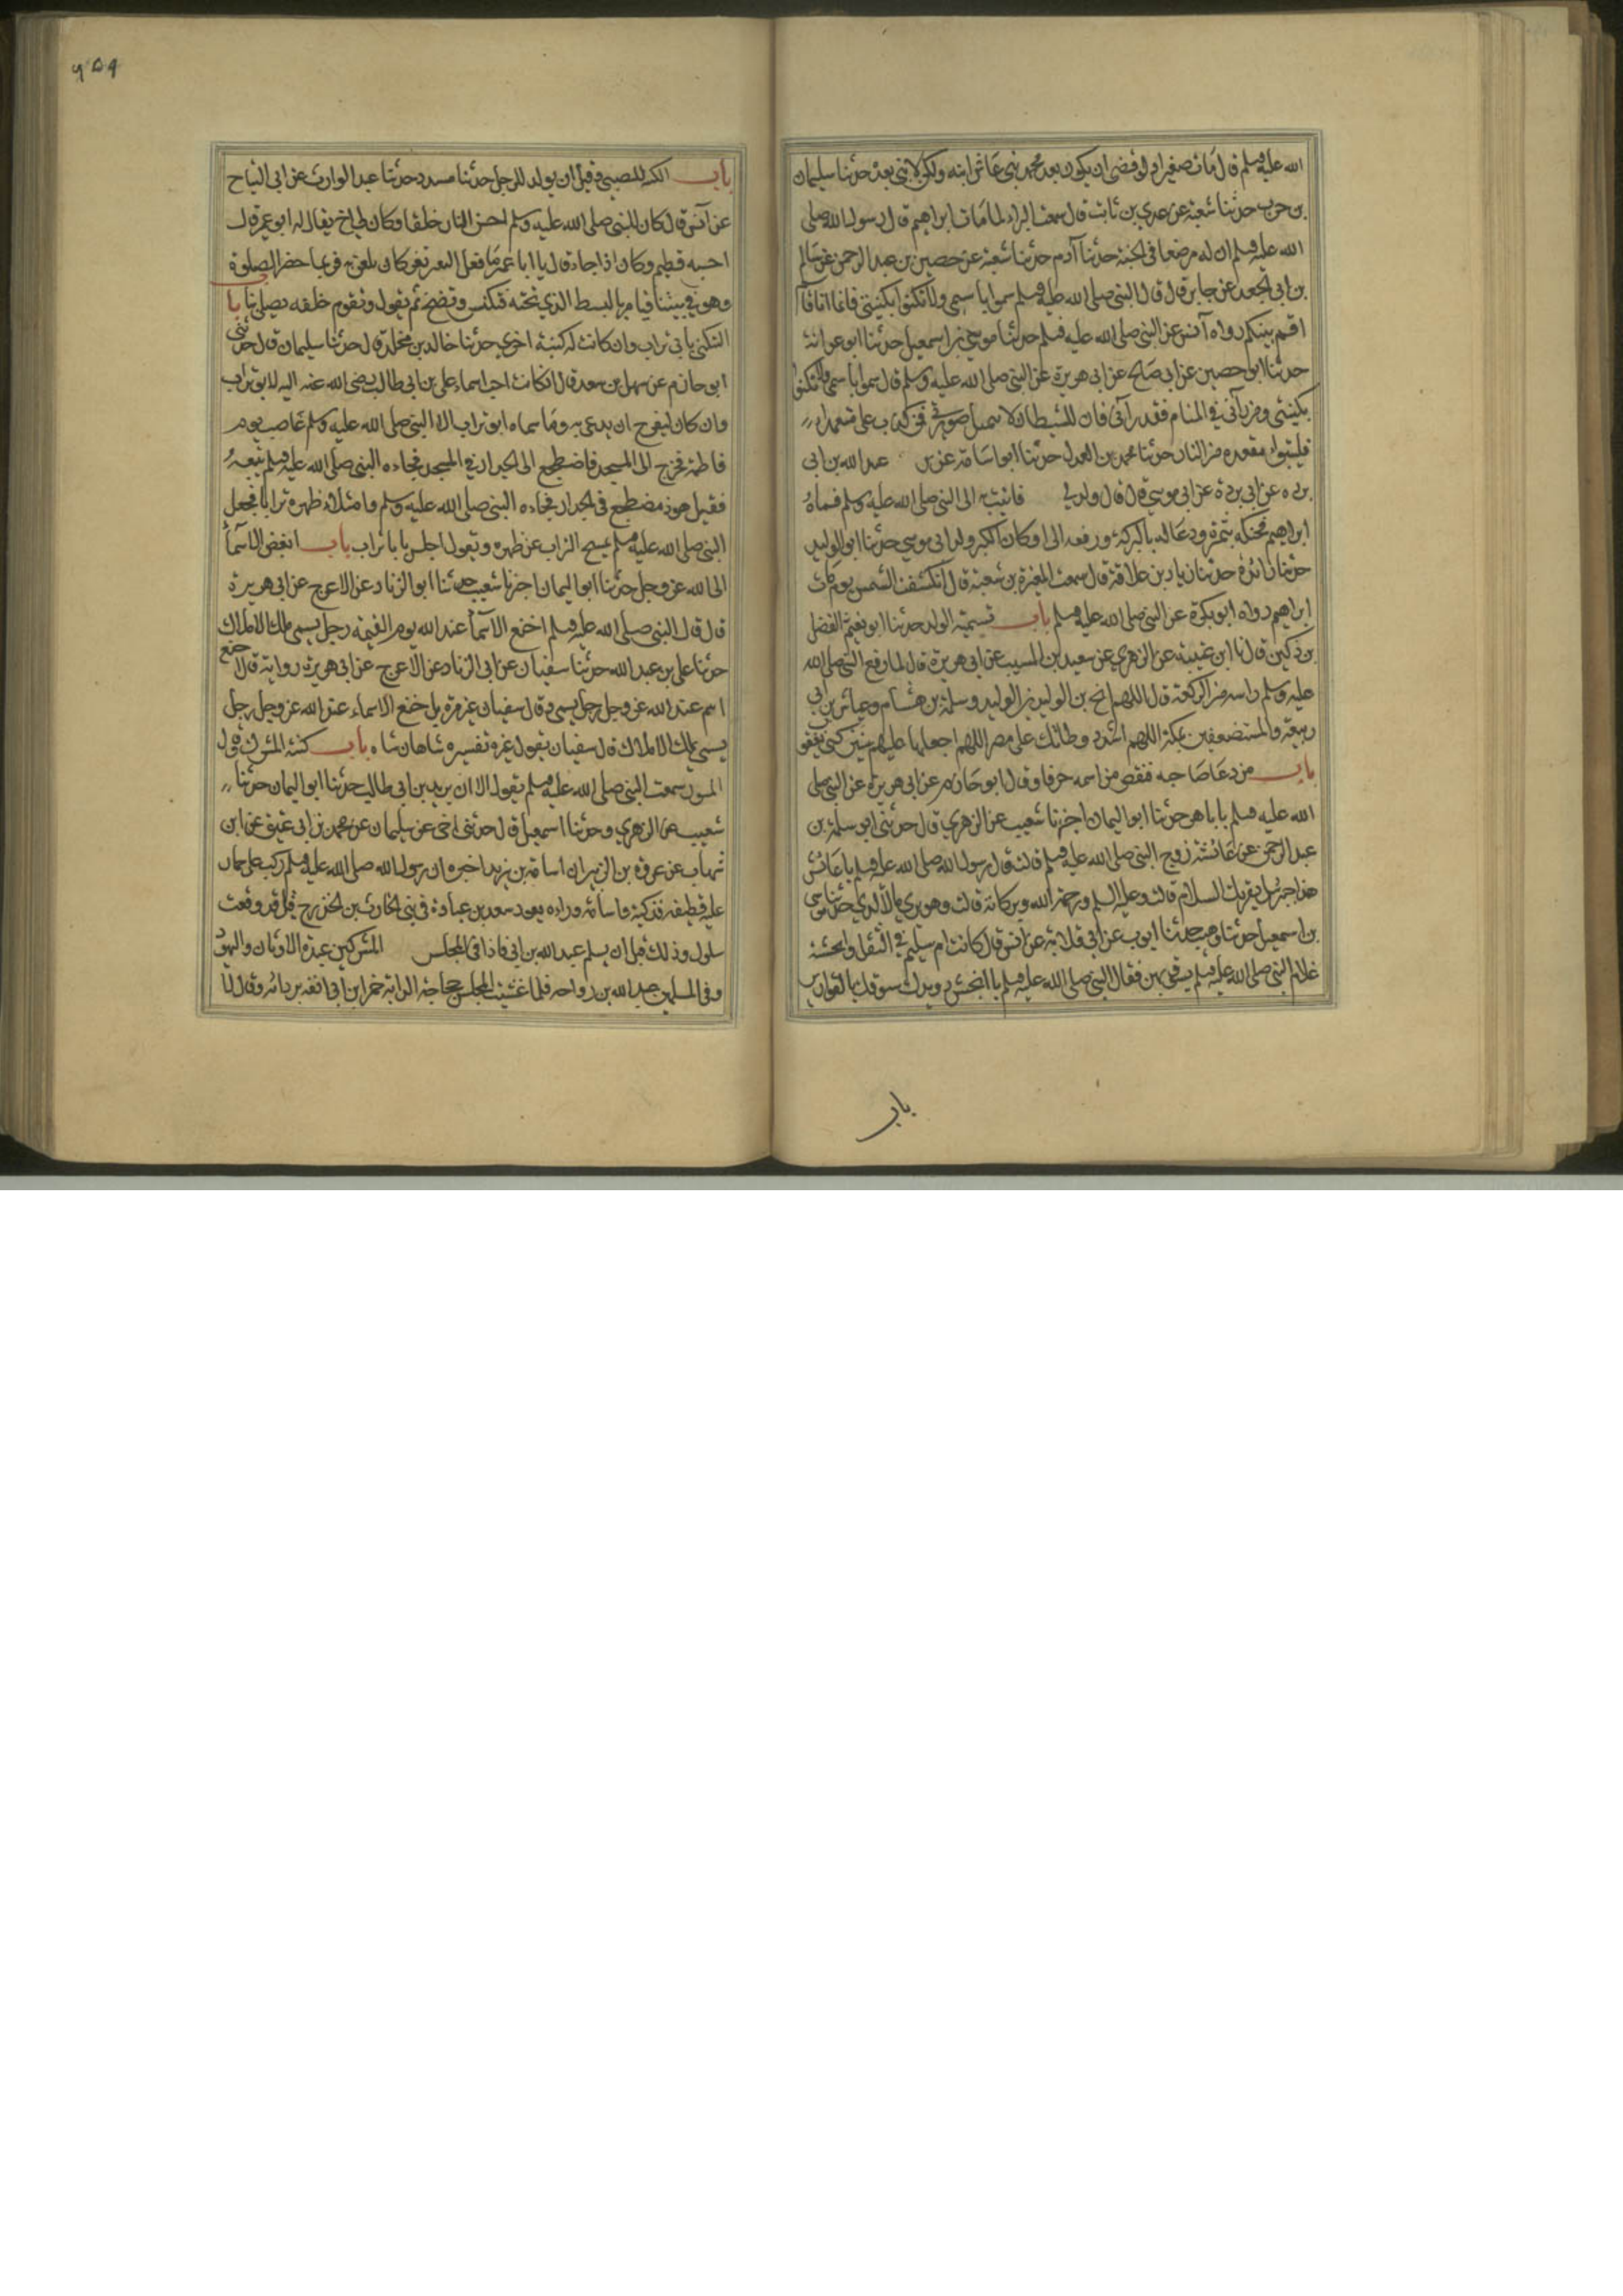 الله عليه وسلم قال مات صغيرا ولو قضى ان يكون بعد محمد نبي عاش ابنه ولكن لا نبي بعده حدثنا سليمان
بن حرب حدثنا شعبة عن عدي بن ثابت قال سمعت البراء لما مات ابراهيم قال رسول الله صلى
الله عليه وسلم ان له مرضعا في الجنة حدثنا آدم حدثنا شعبة عن حصين بن عبد الرحمن عن سالم
بن ابي الجعد عن جابر قال قال النبي صلى الله عليه وسلم سموا باسمي ولا تكنوا بكنيتي فانما انا قاسم
اقسم بينكم رواه انس عن النبي صلى الله عليه وسلم حدثنا موسى بن اسمعيل حدثنا ابو عوانة
حدثنا ابو حصين عن ابي صالح عن ابي هريرة عن النبي صلى الله عليه وسلم قال سموا باسمي ولا تكنوا
بكنيتي ومن رآني في المنام فقد رآني فان الشيطان لا صورتي كذب على متعمدا
فليتبوا مقعده من النار حدثنا محمد بن حدثنا ابو اسامة عن عبد الله بن ابي
برده عن ابي بردة عن ابي موسى قال ولد لي فاتيت به الى النبي صلى الله عليه وسلم فسماه
ابراهيم فحنكه بتمرة ودعا له بالبركة ورفعه الى وكان اكبر ولد ابي موسى حدثنا ابو الوليد
حدثنا زائدة حدثنا زياد بن علاقة قال سمعت المغيرة بن شعبة قال انكسفت الشمس يوم مات
ابراهيم رواه ابو بكرة عن النبي صلى الله عليه وسلم باب تسمية الوليد حدثنا ابو نعيم الفضل
بن دكين قال نا ابن عيينه عن الزهري عن سعيد بن المسيب عن ابي هريرة قال لما رفع النبي صلى الله
عليه وسلم راسه من الركعة قال اللهم انج بن الوليد بن الوليد وسلمة بن هشام وعياش بن ابي
ربيعة والمستضعفين بمكة اللهم اشدد وطاتك على مضر اللهم اجعلها عليهم سنين كسني يوسف
باب من دعا صاحبه فنقص من اسمه حرفا وقال ابو حازم عن ابي هريرة عن النبي صلى
الله عليه وسلم يا باهر حدثنا ابو اليمان اخبرنا شعيب عن الزهري قال حدثني ابو سلمة بن
عبد الرحمن عن عائشة زوج النبي صلى الله عليه وسلم قالت قال رسول الله صلى الله عليه وسلم يا عائش
هذا جبريل يقريك السلام قالت وعليه السلم ورحمة الله وبركاته قالت وهو يرى ما لا نرى حدثنا موسى
بن اسمعيل حدثنا وهيب حدثنا ايوب عن ابي قلابة عن انس قال كانت ام سليم في الثقل وانجشة
غلام النبي صلى الله عليه وسلم يسوق بهن فقال النبي صلى الله عليه وسلم يا انجش رويدك سوقك بالقوارير
باب
باب الكنية للصبي وقبل ان يولد للرجل حدثنا مسدد حدثنا عبد الوارث عن ابي التياح
عن انس قال كان النبي صلى الله عليه وسلم احسن الناس خلقا وكان لي اخ يقال له ابو عمير قال
احسبه فطيم وكان اذا جاء قال يا ابا عمير ما فعل النغير نغر كان يلعب به فربما حضر الصلوة
وهو في بيتنا فيامر بالبسط الذي تحته فيكنس وينضح ثم يقول ونقوم خلفه فيصلي بنا باب
التكني بابي تراب وان كانت له كنية اخرى حدثنا خالد بن مخلد قال حدثنا سليمان قال حدثني
ابو حازم عن سهل بن سعد قال ان كانت احب اسماء علي بن ابي طالب رضي الله عنه اليه لابو تراب
وان كان ليفرح ان يدعى به وما سماه ابو تراب الا النبي صلى الله عليه وسلم غاضب يوم
فاطمة فخرج الى المسجد فاضطجع الى الجدار في المسجد فجاءه النبي صلى الله عليه وسلم يتبعه
فقيل هوذا مضطجع في الجدار فجاءه النبي صلى الله عليه وسلم وامتلا ظهره ترابا فجعل
النبي صلى الله عليه وسلم يمسح التراب عن ظهره ويقول اجلس يا با تراب باب ابغض الاسماء
الى الله عز وجل حدثنا ابو اليمان اخبرنا شعيب حدثنا ابو الزناد عن الاعرج عن ابي هريرة
قال قال النبي صلى الله عليه وسلم اخنع الاسماء عند الله يوم القيمة رجل يسمى ملك الاملاك
حدثنا علي بن عبد الله حدثنا سفيان عن ابي الزناد عن الاعرج عن ابي هريرة رواية قال اخنع
اسم عند الله عز وجل رجل يسمى وقال سفيان غير مرة بل اخنع الاسماء عند الله عز وجل رجل
يسمى بملك الاملاك قال سفيان يقول غيره تفسيره شاهان شاه باب كنية المشرك وقال
المسور سمعت النبي صلى الله عليه وسلم يقول الا ان يريد بن ابي طالب حدثنا ابو اليمان حدثنا
شعيب عن الزهري وحدثنا اسمعيل قال حدثني اخي عن سليمان عن محمد بن ابي عتيق عن ابن
شهاب عن عروة بن الزبير ان اسامة بن زيد اخبره ان رسول الله صلى الله عليه وسلم ركب على حمار
عليه قطيفة فدكية واسامة وراءه يعود سعد بن عبادة في بني الحارث بن الخزرج قبل وقعت
سلول وذلك قبل ان يسلم عبد الله بن ابي فاذا في المجلس المشركين عبدة الاوثان واليهود
وفي المسلمين عبد الله بن رواحه فلما غشيت المجلس عجاجة الدابة خمر ابن ابي انفه بردائه وقال لا